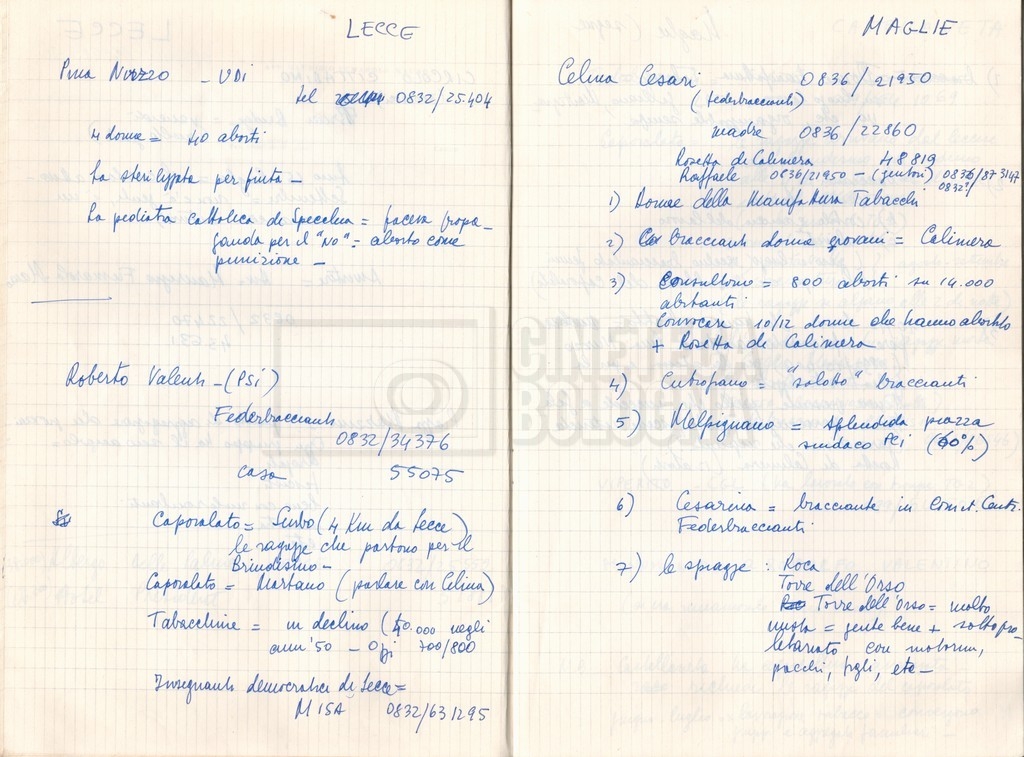 LECCE
Pina Nuzzo - UDI
tel 0832/25.404
4 donne = 40 aborti
La sterilizzata per finta -
La pediatra cattolica di Specchia = faceva propa-
ganda per il "NO" = aborto come
punizione -
Roberto Valenti - (PSI)
Federbraccianti
0832/34376
casa 55075
Caporalato = Surbo (4 Km da Lecce)
le ragazze che partono per il
Brindisino -
Caporalato = Martano (parlare con Celina)
Tabacchine = in declino (50.000 negli
anni '50 - Oggi 700/800
Insegnanti democratiche di Lecce =
MISA 0832/631295
MAGLIE
Celina Cesari 0836/21950
(Federbraccianti)
madre 0836/22860
Rosetta di Calimera 48819
Raffaele 0836/21950 - (genitori) 0836/873147
0832?
1) Donne della Manifattura Tabacchi
2) braccianti donne giovani = Calimera
3) Consultorio = 800 aborti su 14.000
abitanti
Convocare 10/12 donne che hanno abortito
+ Rosetta di Calimera
4) Cutrofiano = "salotto" braccianti
5) Melpignano = splendida piazza
sindaco PCI (60%)
6) Cesarina = bracciante in Comit. Centr.
Federbraccianti
7) le spiagge : Roca
Torre dell'Orso
Torre dell'Orso = molto
mista = gente bene + sottopro-
letariato con motorini,
pacchi, figli, etc -
CINETECA
BOLOGNA